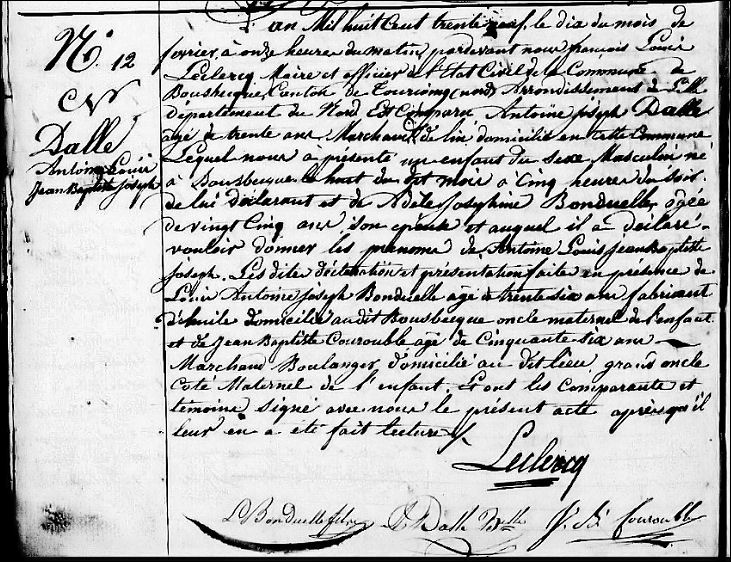 N.° 12
Dalle
Antoine Louis
Jean Baptiste Joseph
L'an Mil huit Cent trente neuf, le dix du mois de
fevrier à onze heure du matin pardevant nous françois Louis
Leclercq Maire et officier de l'Etat Civil de la Commune de
Bousbecque, Canton de Tourcoing (nord) Arrondissement de Lille
département du Nord Est Comparu Antoine Joseph Dalle
âgé de trente ans Marchand de lin domicilié en cette Commune
Lequel nous a présenté un enfant du sexe Masculin né
à Bousbecque le huit du dit mois à Cinq heure du soir
de lui déclarant et de Adèle Josephine Bonduelle, âgée
de vingt Cinq ans son épouse et auquel il a déclaré
vouloir donner les prénoms de Antoine Louis Jean Baptiste
Joseph. Les dite déclaration et présentation faite en présence de
Louis Antoine Joseph Bonduelle âgé de trente six ans fabricant
d'huile domicilié audit Bousbecque oncle maternel de l'enfant
et de Jean Baptiste Courouble âgé de Cinquante six ans
Marchand Boulanger domicilié au dit lieu grand oncle
Coté Maternel de l'enfant, et ont les comparants et
témoins signé avec nous le présent acte après qu'il
leur en a été fait lecture
Leclercq
L Bonduelle fils Dalle J. B. Courouble